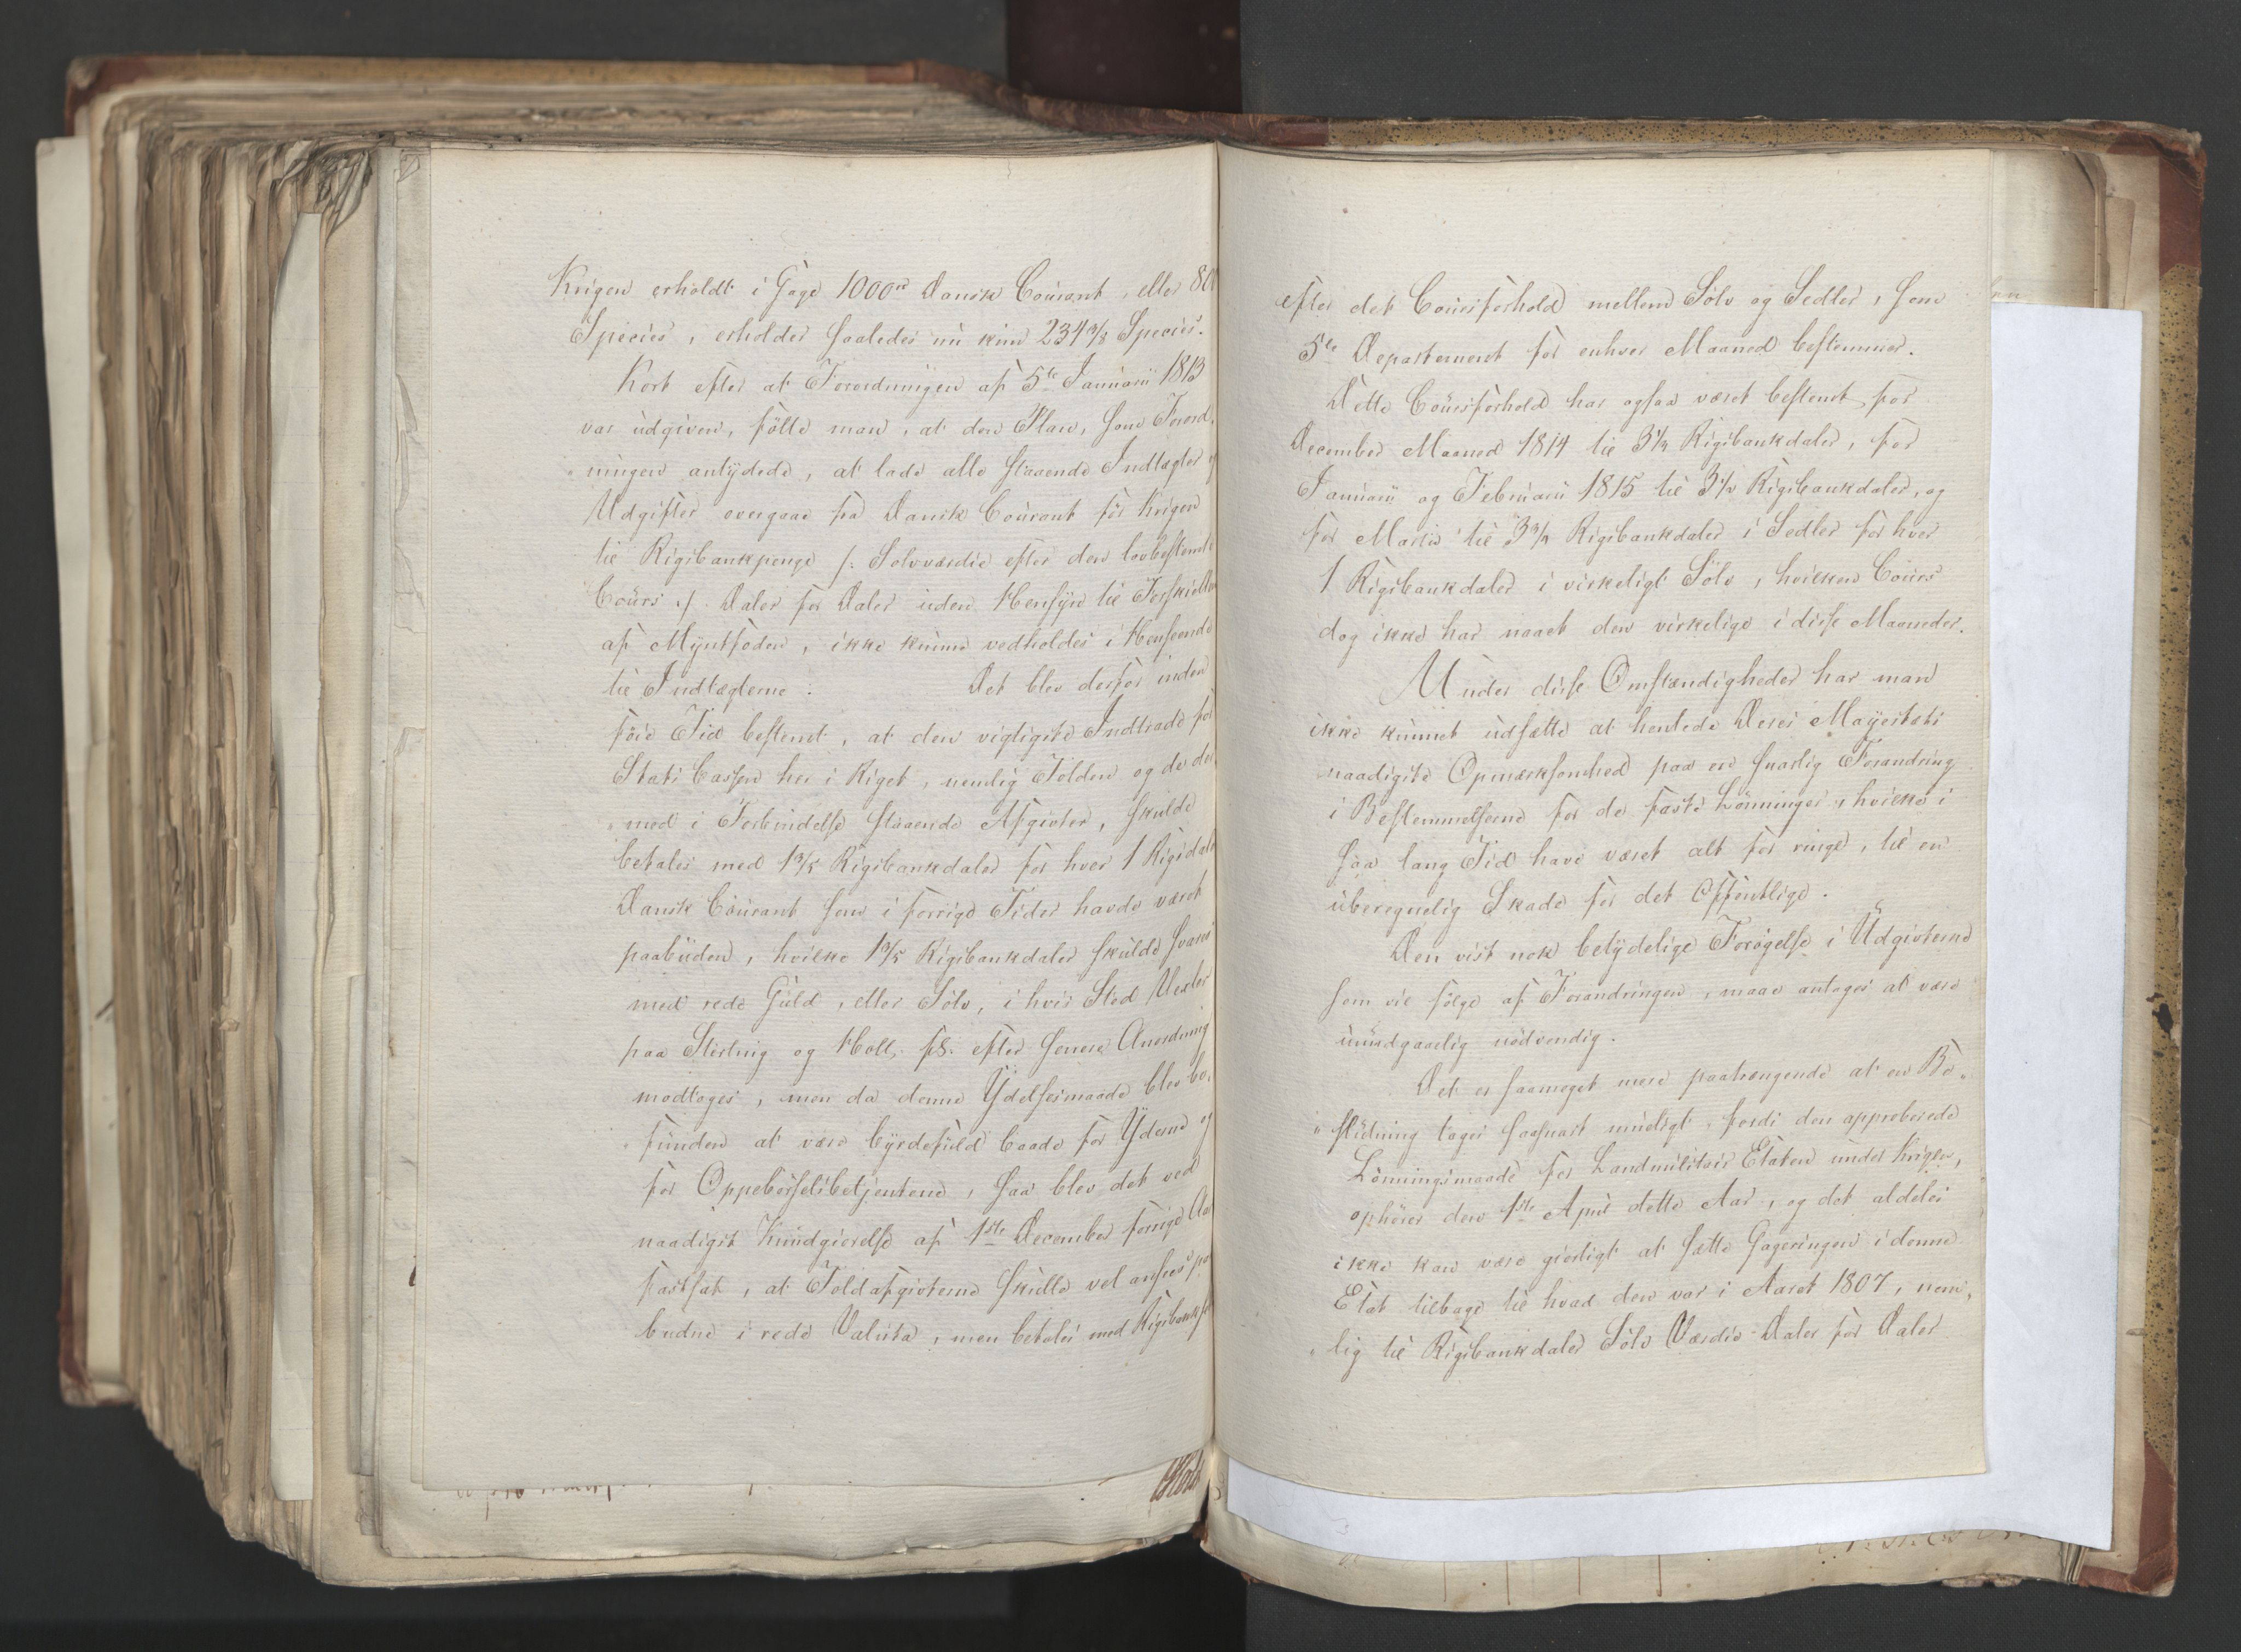 Krigen erholdt i Gage 1000rd Dansk Courant, eller 80
Species, erholder saaledes nu kun 234 3/8 Species.
Kort efter at Forordningen af 5te Januarii 1813
var udgiven, fölte man, at den Plan, som Forord,
ningen antÿdede, at lade alle staaende Indtægter
Udgifter overgaae fra Dansk Courant för Krigen
til Rigsbankpenge /: Sølvværdie efter den lovbestemte
Cours :/ Daler for Daler uden Hensÿn til Forskiellen
af Myntfoden, ikke kunne vedholdes i Henseende
til Indtægterne: Det blev derfor inden
föie Tid bestemt, at den vigtigste Indtræde for
Stats Cassen her i Riget, nemlig Tolden og de der
med i Forbindelse staaende Afgivter, skulde
betales med 1 3/5 Rigsbankdaler for hver 1 Rigsdaler
Dansk Courant som i forrige Tider havde været
paabuden, hvilke 1 3/5 Rigsbankdaler skulde svares
med rede Guld, eller Sölv, i hvis Sted Vexler
paa Sterling og Holl. fs. efter senere Anordning
modtoges, men da denne Ÿdelsesmaade blev be,
funden at være bÿrdefuld baade for Ÿderne og
for Oppebörselsbetjentene, saa blev det ved
naadigst Kundgiörelse af 1ste December forrige Aar
fastsat, at Toldafgivterne skulde vel ansees paa
budne i rede Valuta, men betales med Rigsbanks
efter det Coursforhold mellem Sölv og Sedler, som
5te Departement for enhver Maaned bestemmer.
Dette Coursforhold har ogsaa været bestemt for
December Maaned 1814 til 3 1/4 Rigsbankdaler, for
Januarii og Februarii 1815 til 3 1/2 Rigsbankdaler, og
for Martii til 3 3/4 Rigsbankdaler i Sedler for hver
1 Rigsbankdaler i virkeligt Sölv, hvilken Cours
dog ikke har naaet den virkelige i disse Maaneder.
Under disse Omstændigheder har man
ikke kunnet udsætte at henlede Deres Majestæts
naadigste Opmærksomhed paa en snarlig Forandring
i Bestemmelserne for de faste Lönninger, hvilke i
saa lang Tid have været alt for ringe, til en
uberegnelig Skade for det Offentlige.
Den vist nok betÿdelige Forögelse i Udgivterne
som vil fölge af Forandringen, maae antages at være
uundgaaelig nödvendig.
Det er saameget mere paatrængende at en Be,,
,, slutning tages saasnart muligt, fordi den approberede
Lönningsmaade for Landmilitair Etaten under Krigen,
ophörer den 1ste April dette Aar, og det aldeles
ikke kan være giörligt at sætte Gageringen i denne
Etat tilbage til hvad den var i Aaret 1807, nem,
,, lig til Rigsbankdaler Sölv Værdie Daler for Daler